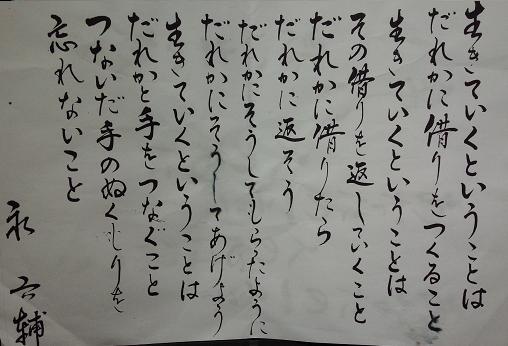 生きていくということは
だれかに借りをつくること
生きていくということは
その借りを返していくこと
だれかに借りたら
だれかに返そう
だれかにそうしてもらったように
だれかにそうしてあげよう
生きていくということは
だれかと手をつなぐこと
つないだ手のぬくもりを
忘れないこと
永六輔